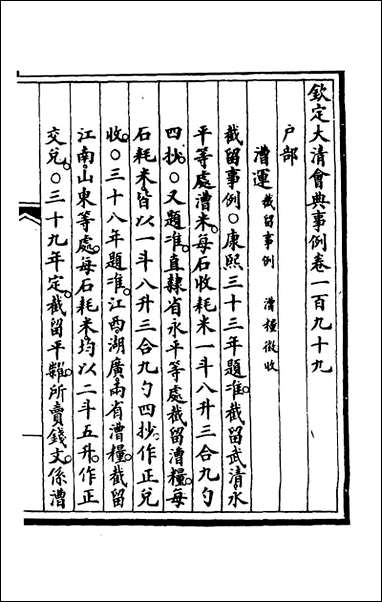 欽定大清會典事例卷一百九十九
户部
漕運 截留事例 漕糧徵收
截留事例○康熙三十三年題准截留武清永
平等處漕米每石收耗米一斗八升三合九勺
四抄○又題准直隸省永平等處截留漕糧每
石耗米皆以一斗八升三合九勺四抄作正兌
收○三十八年題准江西湖廣兩省漕糧截留
江南山東等處每石耗米均以二斗五升作正
交兌○三十九年定截留平糶所賣錢文係漕